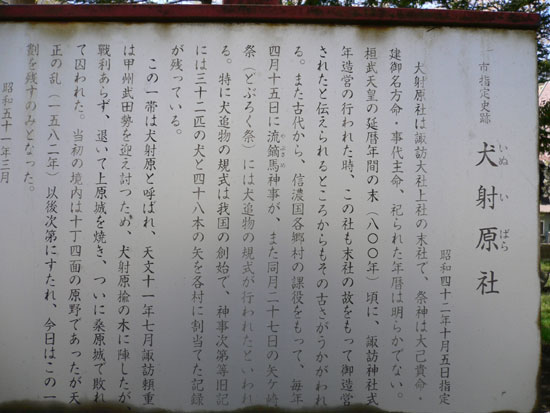 市指定史跡
犬射原社
いぬいばら
昭和四十二年十月五日指定
犬射原社は諏訪大社上社の末社で、祭神は大己貴命・
建御名方命・事代主命、祀られた年暦は明らかでない。
桓武天皇の延暦年間の末(八〇〇年)頃に、諏訪神社式
年造営の行われた時、この社も末社の故をもって御造営
されたと伝えられるところからもその古さがうかがわれ
る。また古代から、信濃国各郷村の課役をもって、毎年
四月十五日に流鏑馬神事が、また同月二十七日の矢ケ崎
やぶさめ
祭(どぶろく祭)には犬追物の規式が行われたといわれ
る。特に犬追物の規式は我国の創始で、神事次第等旧記
には三十二匹の犬と四十八本の矢を各村に割当てた記録
が残っている。
この一帯は犬射原と呼ばれ、天文十一年七月諏訪頼重
は甲州武田勢を迎え討つため、犬射原撿の木に陳したが、
戦利あらず、退いて上原城を焼き、ついに桑原城で敗れ
て囚われた。当初の境内は十丁四面の原野であったが天
正の乱(一五八二年)以後次第にすたれ、今日はこの一
劃を残すのみとなった。
昭和五十一年三月